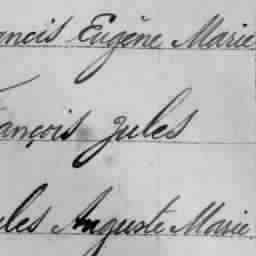 ancis Eugène Marie
ançois Jules
ules Auguste Marie